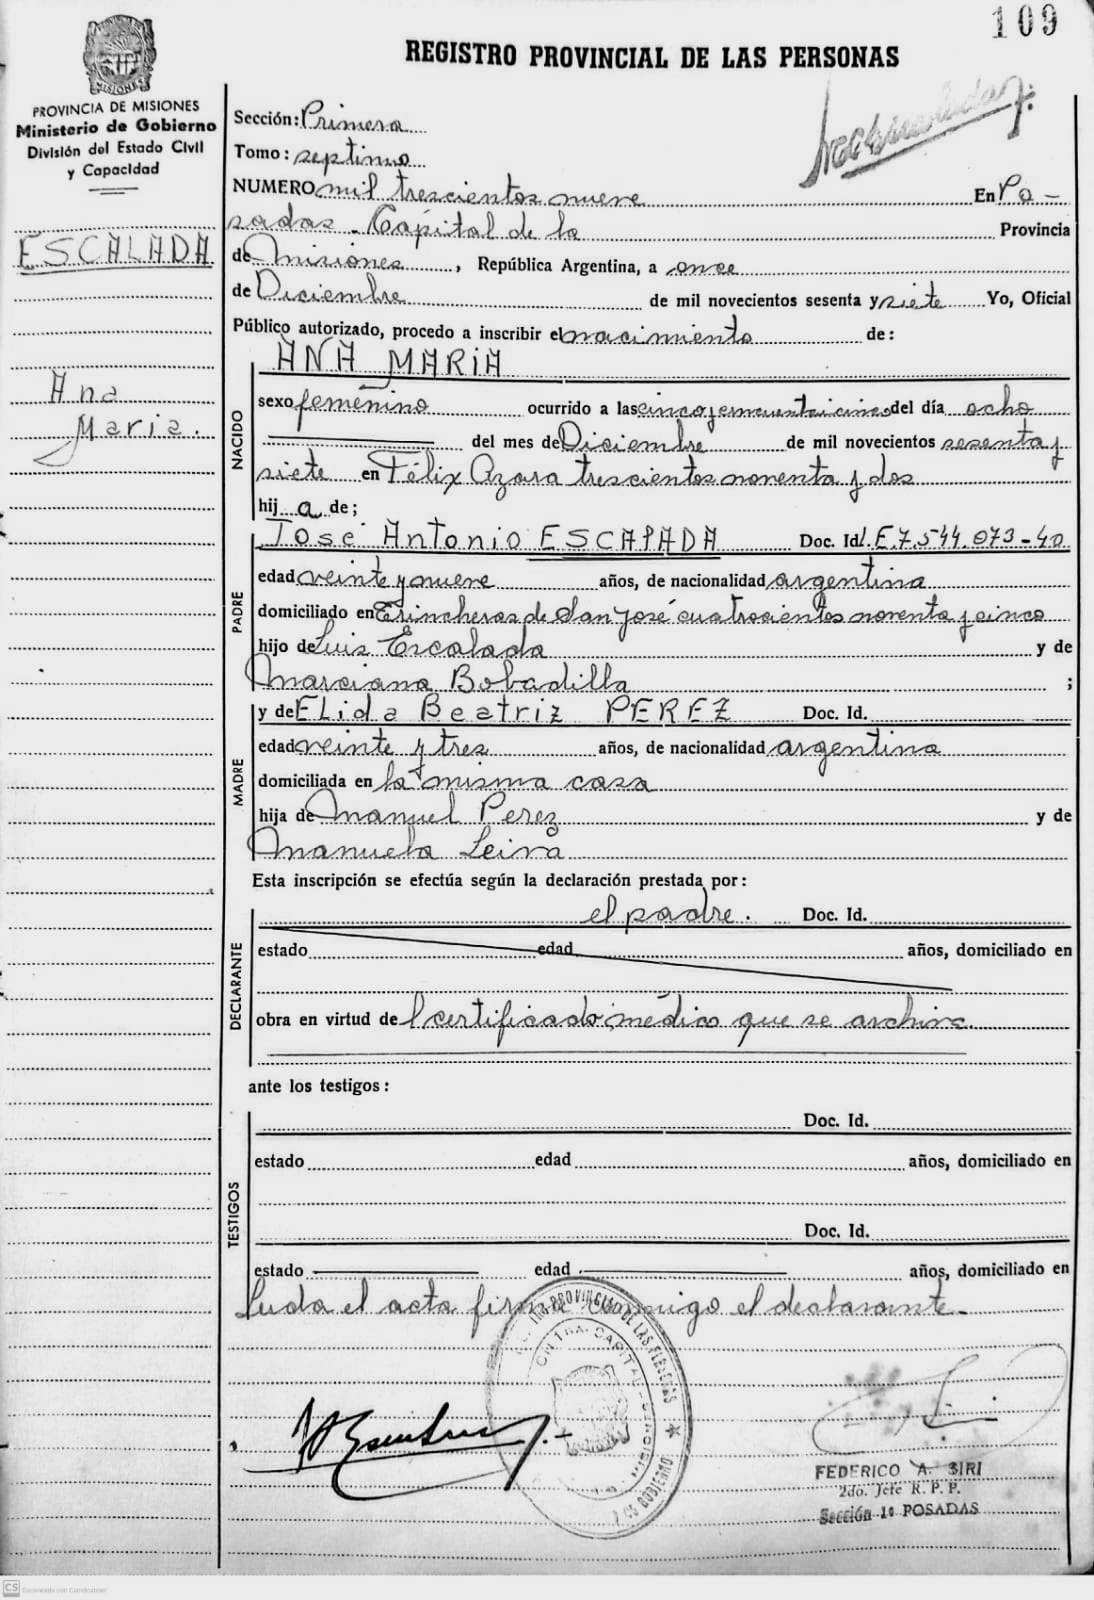 109
REGISTRO PROVINCIAL DE LAS PERSONAS
PROVINCIA DE MISIONES
Ministerio de Gobierno
División del Estado Civil
y Capacidad
ESCALADA
Ana
Maria.
Sección: Primera
Tomo: septimo
NUMERO mil trescientos nueve En Po-
sadas - Capital de la Provincia
de Misiones, República Argentina, a once
de Diciembre de mil novecientos sesenta y siete Yo, Oficial
Público autorizado, procedo a inscribir el nacimiento de:
ANA MARIA
NACIDO
sexo femenino ocurrido a las cinco y cincuenta i cinco del día ocho
del mes de Diciembre de mil novecientos sesenta y
siete en Félix Azara trescientos noventa y dos
hij a de;
José Antonio ESCALADA Doc. Id. L.E.7.544.073-40
PADRE
edad veinte y nueve años, de nacionalidad argentina
domiciliado en Trincheras de San José cuatrocientos noventa y cinco
hijo de Luis Escalada y de
Marciana Bobadilla ;
y de ELida Beatriz PEREZ Doc. Id.
MADRE
edad veinte y tres años, de nacionalidad argentina
domiciliada en la misma casa
hija de Manuel Perez y de
Manuela Leiva
Esta inscripción se efectúa según la declaración prestada por:
el padre. Doc. Id.
DECLARANTE
estado edad años, domiciliado en
obra en virtud de l certificado médico que se archiva.
ante los testigos:
Doc. Id.
TESTIGOS
estado edad años, domiciliado en
Doc. Id.
estado edad años, domiciliado en
Leida el acta firma conmigo el declarante-
PROVINCIAL DE LAS PERSONAS
CAPITAL
GOBIERNO
FEDERICO A. SIRI
2do. Jefe R. P. P.
Sección 1ª POSADAS
CS Escaneado con CamScanner